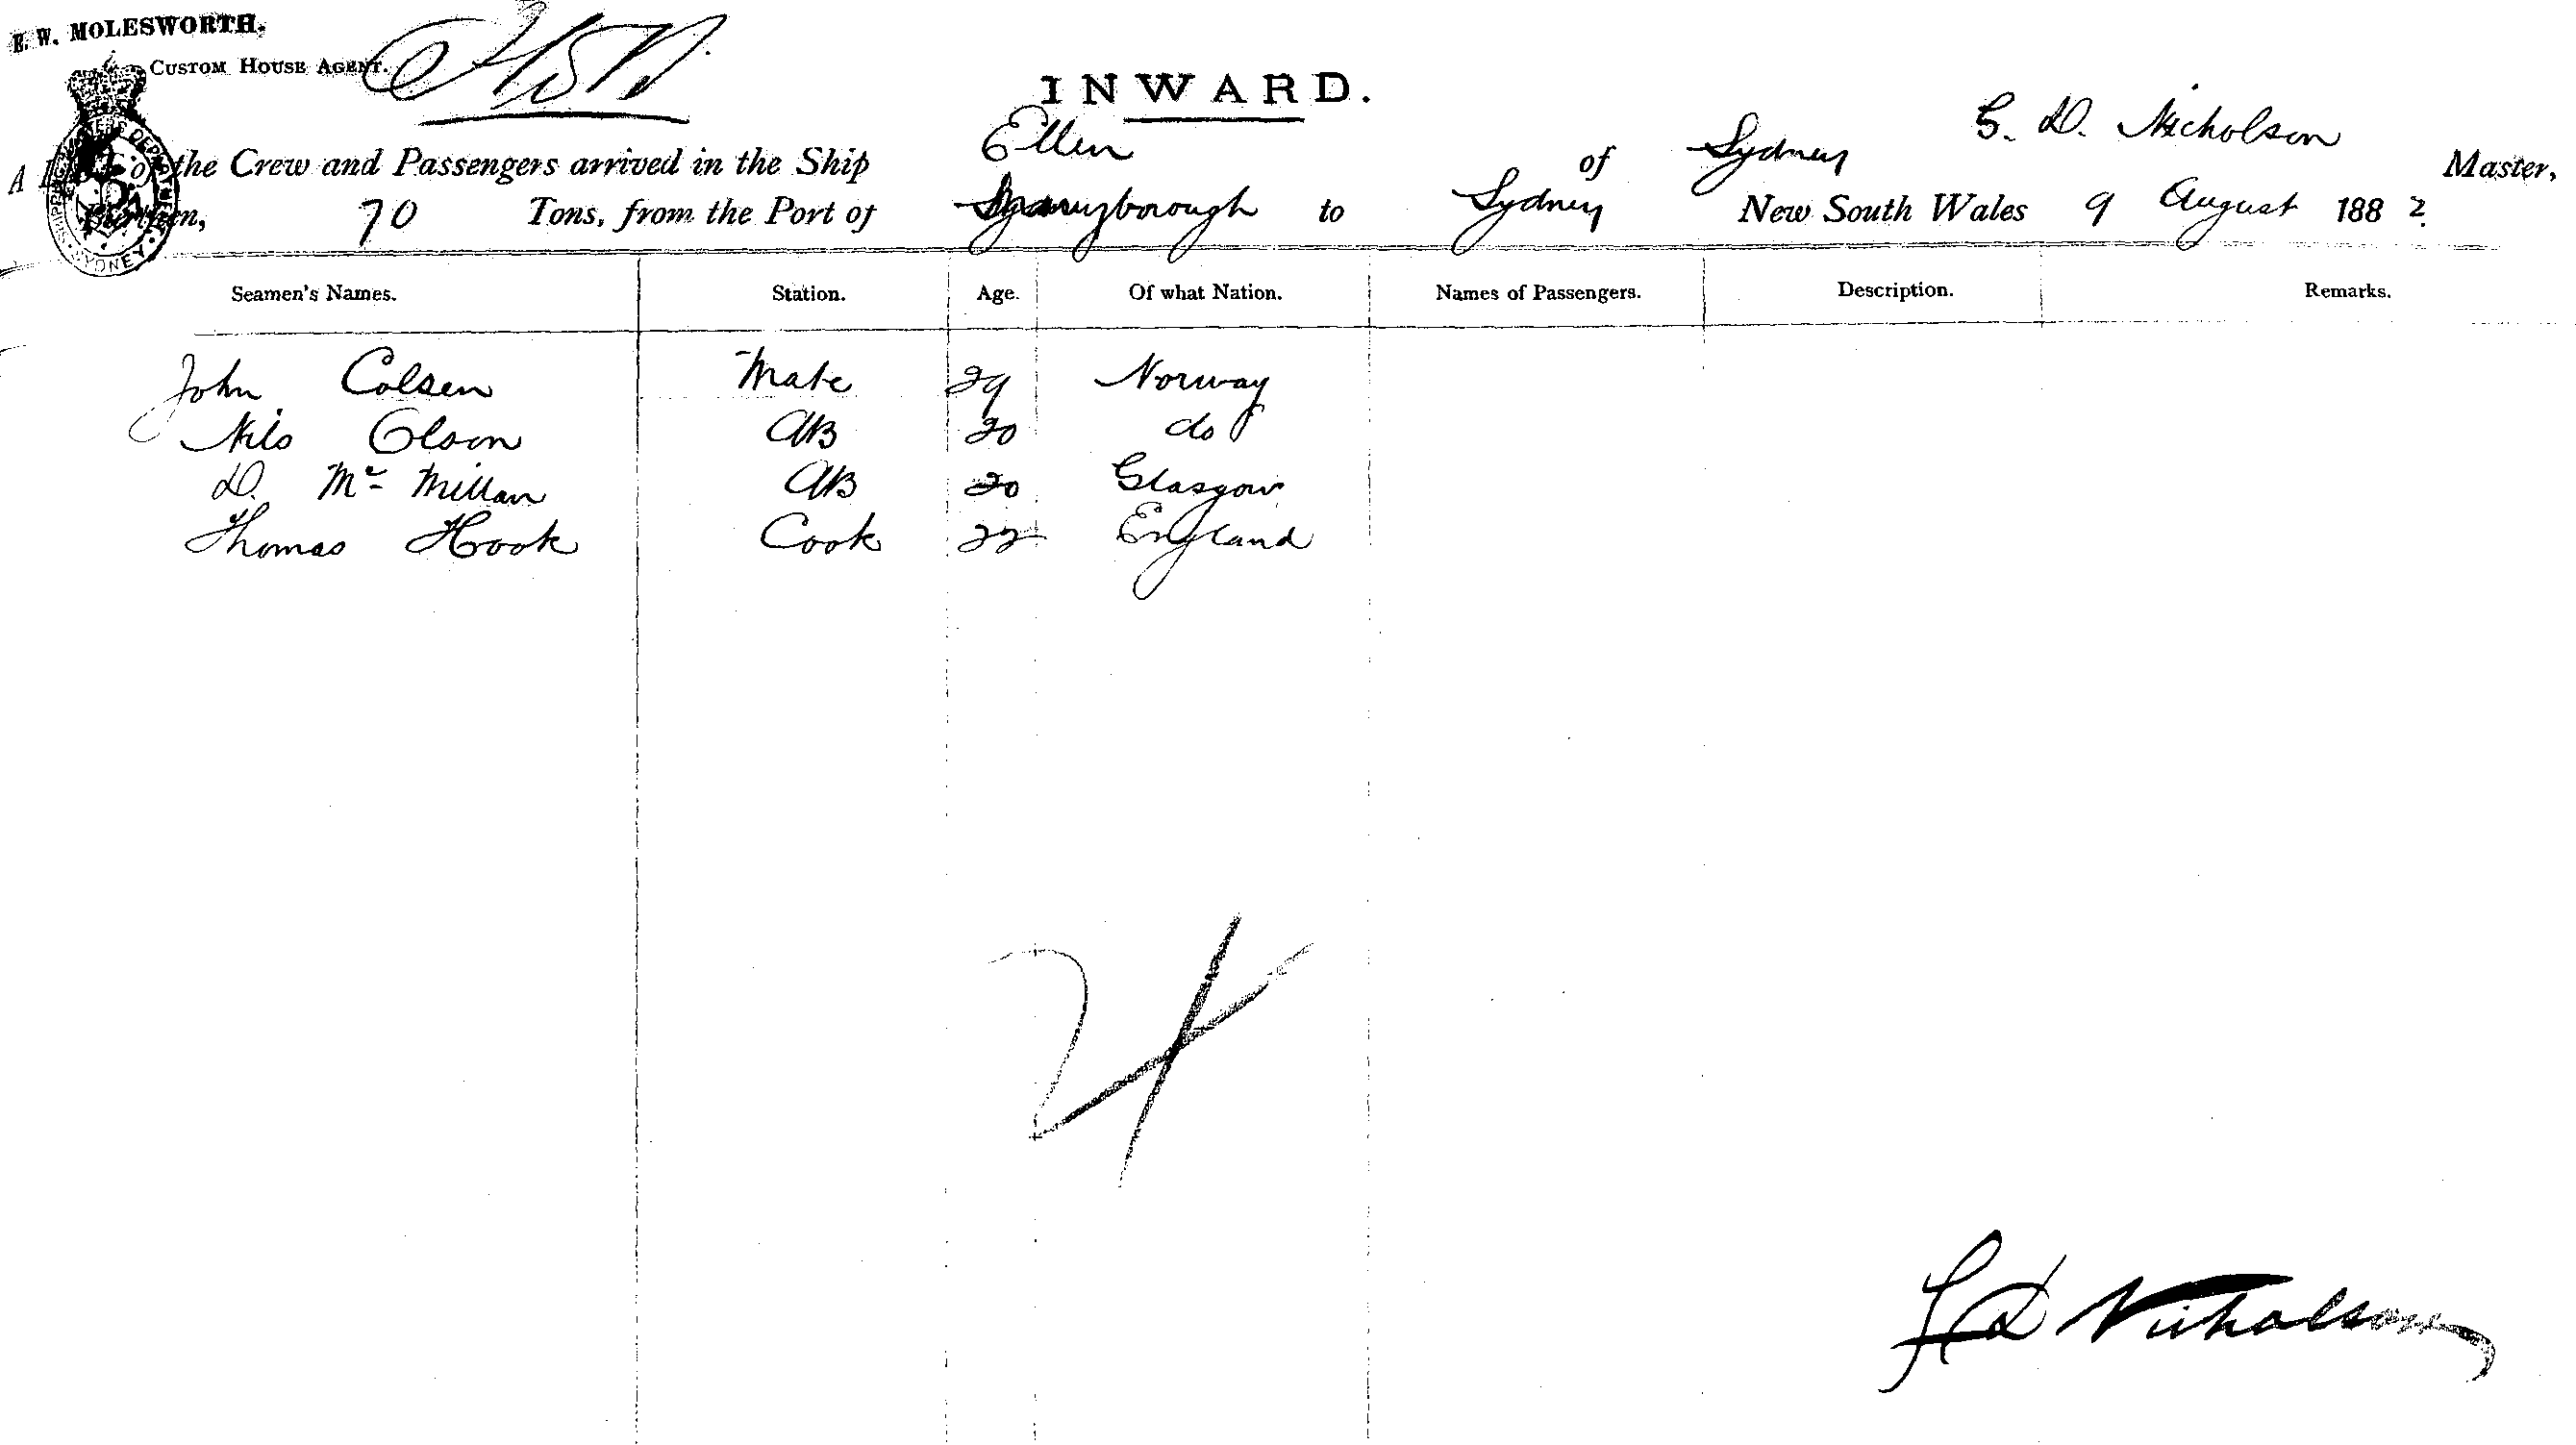 E. W. MOLESWORTH.
CUSTOM HOUSE AGENT.
INWARD.
A List of the Crew and Passengers arrived in the Ship Ellen of Sydney G. D. Nicholson Master,
Burthen, 70 Tons, from the Port of Maryborough to Sydney New South Wales 9 August 1882
Seamen's Names. Station. Age. Of what Nation. Names of Passengers. Description. Remarks.
John Colsen Mate 29 Norway
Nils Olson AB 20 do
D. Mc Millan AB 20 Glasgow
Thomas Hook Cook 22 England
4
D Nicholson